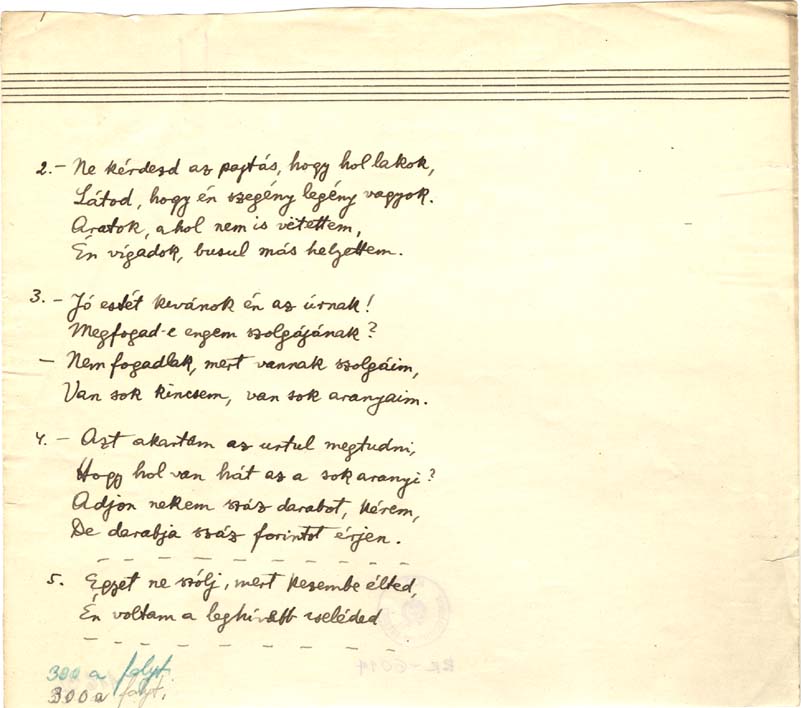 2. - Ne kérdezd az pajtás, hogy hol lakok,
Látod, hogy én szegény legény vagyok.
Aratok, ahol nem is vetettem,
Én vigadok, busul más helyettem.
3. - Jó estét kevánok én az úrnak!
Megfogad-e engem szolgájának?
- Nem fogadlak, mert vannak szolgáim,
Van sok kincsem, van sok aranyaim.
4. - Azt akartam az urtul megtudni,
Hogy hol van hát az a sok aranyi?
Adjon nekem száz darabot, kérem,
De darabja száz forintot érjen.
5. Egyet ne szólj, mert kezembe élted,
Én voltam a leghivebb cseléded
300 a folyt.
300a folyt.